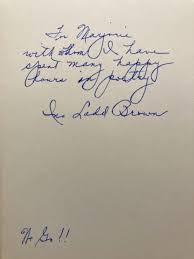 For Marjorie
with whom I have
spent many happy
hours in poetry
Ina Ladd Brown
We Go!!